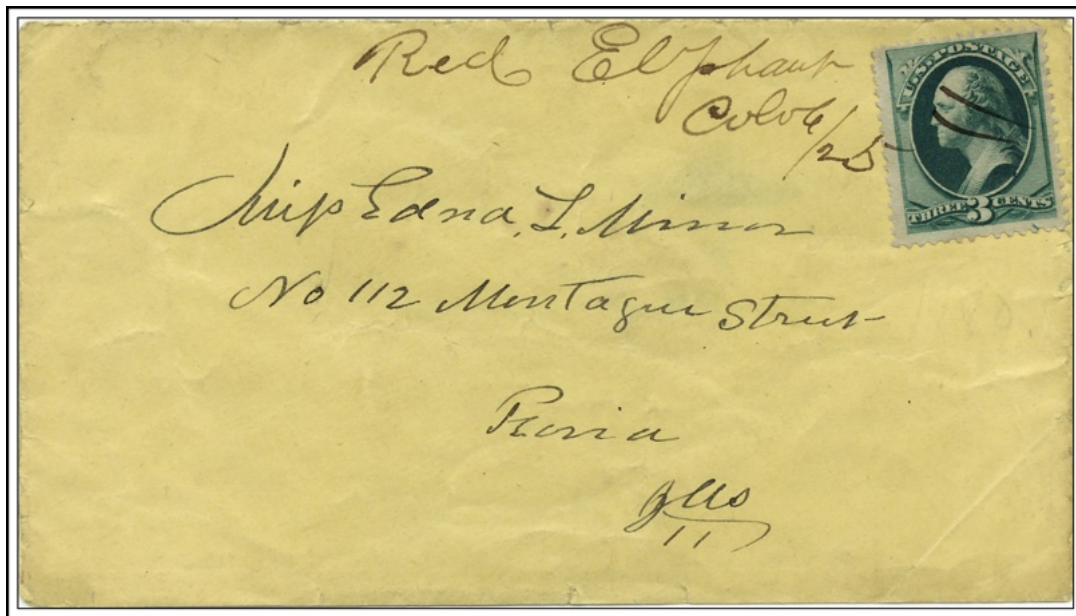 Red Elephant
Colo 6/25
U.S. POSTAGE
THREE 3 CENTS
Miss Edna, L, Minor
No 112 Montague Street
Peoria
Ills